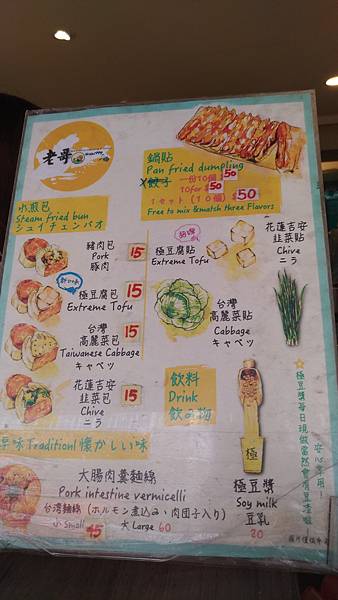 老哥
鍋貼
Pan fried dumpling
一份10個 $50
10for $50
1セット(10個) $50
Free to mix&match three Flavors
水煎包
Steam fried bun
シュイチェンパオ
豬肉包 15
Pork
豚肉
極豆腐包 15
Extreme Tofu
台灣
高麗菜包 15
Taiwanese Cabbage
キャベツ
花蓮吉安
韭菜包 15
Chive
ニラ
極豆腐貼
Extreme Tofu
台灣
高麗菜貼
Cabbage
キャベツ
花蓮吉安
韭菜貼
Chive
ニラ
飲料
Drink
飲み物
極
極豆漿
Soy milk
豆乳
20
味Traditionl 懐かしい味
大腸肉羹麵線
Pork intestine vermicelli
台湾麺線(ホルモン煮込み、肉団子入り)
小 Small 45 大 Large 60